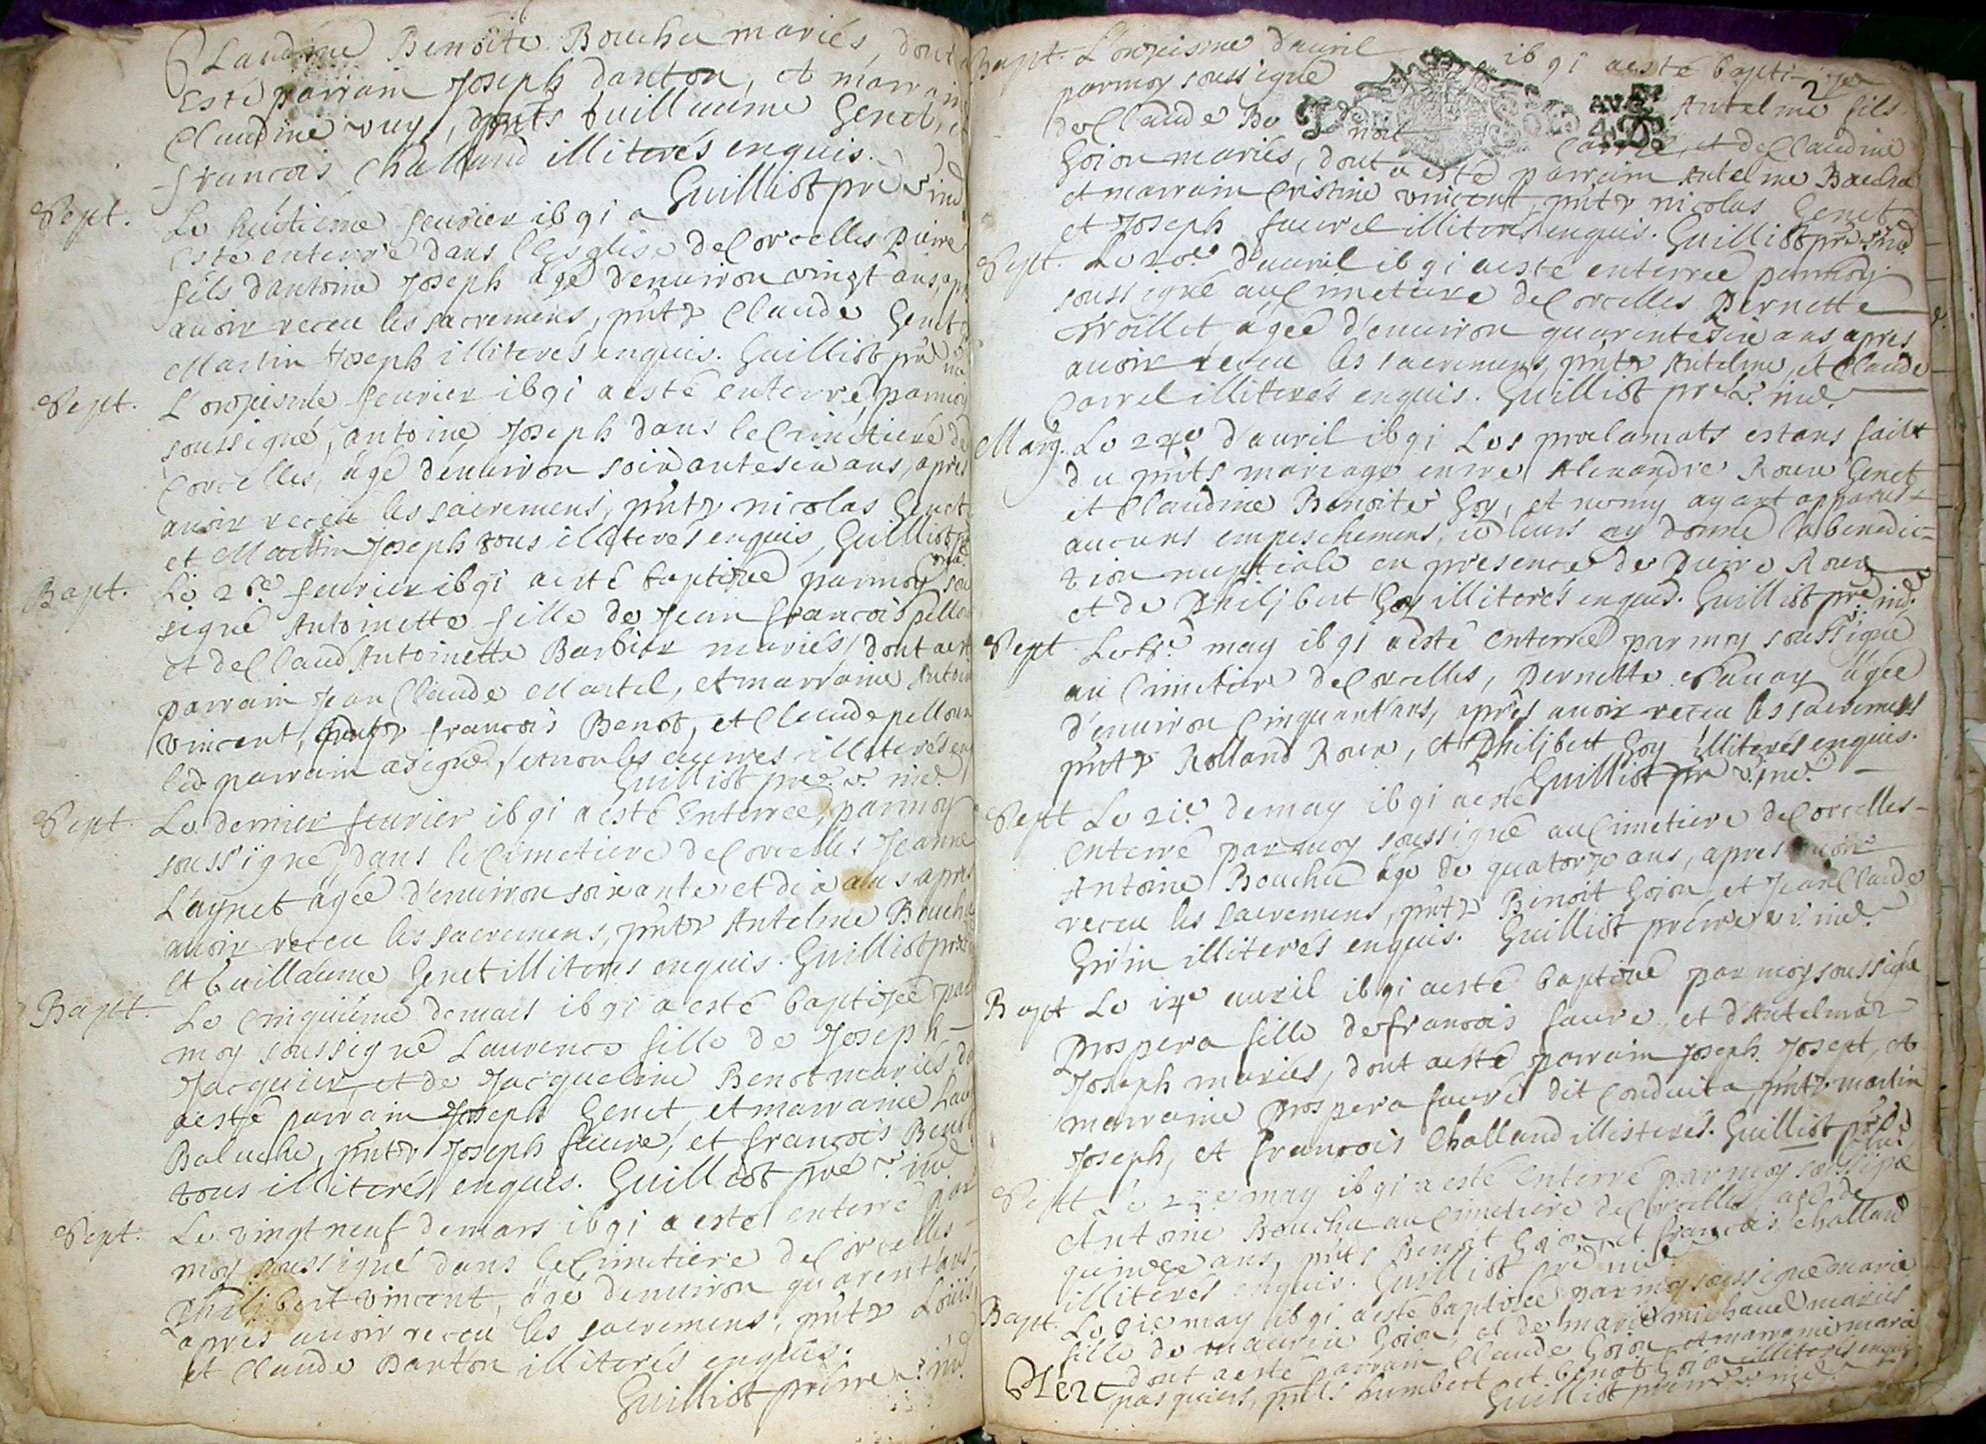 Claudine Benoite Bouchu mariés, dont a
esté parrain Joseph danton, et marrain
Claudine vuy, pnts Guillaume Genet, e
francois Challand illiterés enquis.
Guilliot pre v. ind
Sept. Le huitiéme feurier 1691 a
esté enterré dans l'esglise de Corcelles Pierre
fils d'antoine Joseph agé d'enuiron vingt ans, apre
auoir receu les sacremens, pntz Claude Genet e
Martin Joseph illiterés enquis. Guilliot pre
Sept. L'onziesme feurier 1691 a esté enterré, parmoy
soussigné, antoine Joseph dans le Cimetiere de
Corcelles, agé d'enuiron soixantesix ans, apres
auoir receu les sacremens, pntz nicolas Genet
et Martin Joseph tous illiterés enquis, Guilliot p
Bapt. Le feurier 1691 a esté baptizée parmoy sou
signé Antoinette fille de Jean francois pellou
et de Claud Antoinette Barbier mariés, dont a est
parrain Jean Claude Martel, et marraine Antoin
vincent, pntz francois Benot, et Claude pelloux
led parrain a signé, et non les autres illiterés en
Guilliot pre v. ind.
Sept. Le dernier feurier 1691 a esté enterrée, parmoy
soussigné, dans le Cimetiere de Corcelles Jeanne
Laynet agée d'enuiron soixante et dix ans apres
auoir receu les sacremens, pntz Antelme Bouchu
et Guillaume Genet illiterés enquis. Guilliot pre
Bapt. Le Cinquiéme de mars 1691 a esté baptizée par
moy soussigné Laurence fille de Joseph
Jacquier, et de Jacqueline Benot mariés, do
a esté parrain Joseph Genet, et marraine Lau
pntz Joseph faure, et francois Benot
tous illiterés enquis. Guilliot pre v. ind
Sept. Le vingt neuf de mars 1691 a esté enterré par
moy soussigné dans le Cimetiere de Corcelles
Philibert vincent, agé d'enuiron quarent'ans,
apres auoir receu les sacremens, pntz Louis,
et Claude Danton illiterés enquis.
Guilliot prêtre v. ind.
Bapt. L'onziesme d'auril 1691 a esté bapti
parmoy soussigné Antelme fils
2
de Claude Benoit Carrel, et de Claudine
Goion mariés, dont a esté parrain Antelme Bouchu
et marrain Cristine vincent, pntz nicolas Genet
et Joseph faurel illiterés enquis. Guilliot pre v. ind
Sept. Le 20e d'auril 1691 a esté enterrée parmoy
soussigné au Cimetiere de Corcelles Pernette
Troillet agée d'enuiron quarentesix ans apres
auoir receu les sacremens, pntz Antelme, et Claude
Carrel illiterés enquis. Guilliot pre v. ind.
Marg. Le 24e d'auril 1691 Les proclamats estans faits
du pnts mariage entre Alexandre Roux Genet
et Claudine Benoite Goy, et n'en y ayant apparus
aucuns empeschemens, ie leurs ay donné la benedic=
tion nuptiale en presence de Pierre Roux
et de Philibert Goy illiterés enquis. Guilliot pre v. ind.
Sept. may 1691 a esté enterrée par moy soussigné
au Cimetiere de Corcelles, Pernette agée
d'enuiron Cinquant'ans, aprés auoir receu les sacremens
pntz Rolland Roux, et Philibert Goy illiterés enquis.
Guilliot pre v. ind.
Sept Le 21e de may 1691 a esté
enterré par moy soussigné au Cimetiere de Corcelles
Antoine Bouchu agé de quatorze ans, apres auoir
receu les sacremens, pntz Benoit Goion et Jean Claude
Girin illiterés enquis. Guilliot prêtre v. ind.
Bapt Le 14e auril 1691 a esté baptizée par moy soussigné
Prospera fille de francois faure, et d'Antelmaz
Joseph mariés, dont a esté parrain Joseph Josept, et
marraine prospera faure dit Conduita, pntz martin
Joseph, et francois Challand illisterés. Guilliot pre
Sept Le may 1691 a esté enterré par moy soussigné
Antoine Bouchu au Cimetiere de Corcelles agé de
quinze ans, pnts Benoit Goion, et francois Challand
illiterés enquis. Guilliot pre ind.
Bapt. Le may 1691 a esté baptizée par moy soussigné marie
fille de maurice Goion, et de marie michaud mariés
dont a esté parrain Claude Goion et marraine marie
pasquiers, pnts humbert et benoit Goion illiterés enquis
Guilliot prêtre v. ind.